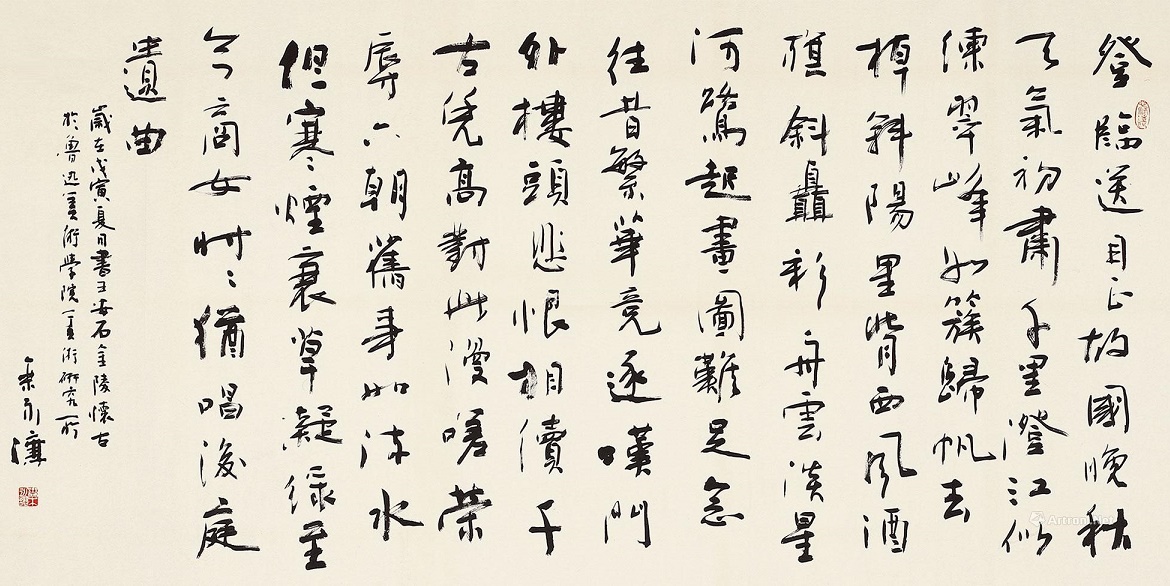 登臨送目正故國晚秋
天氣初肅千里澄江似
練翠峰如簇歸帆去
棹斜陽里背西風酒
旗斜矗彩舟雲淡星
河鷺起畫圖難足念
往昔繁華竞逐嘆門
外樓頭悲恨相續千
古凭高對此漫嗟榮
辱六朝舊事如流水
但寒煙衰草凝綠至
今商女时〻猶唱後庭
遺曲
歲在戊寅夏月書王安石金陵懷古
於魯迅美術學院美術研究所